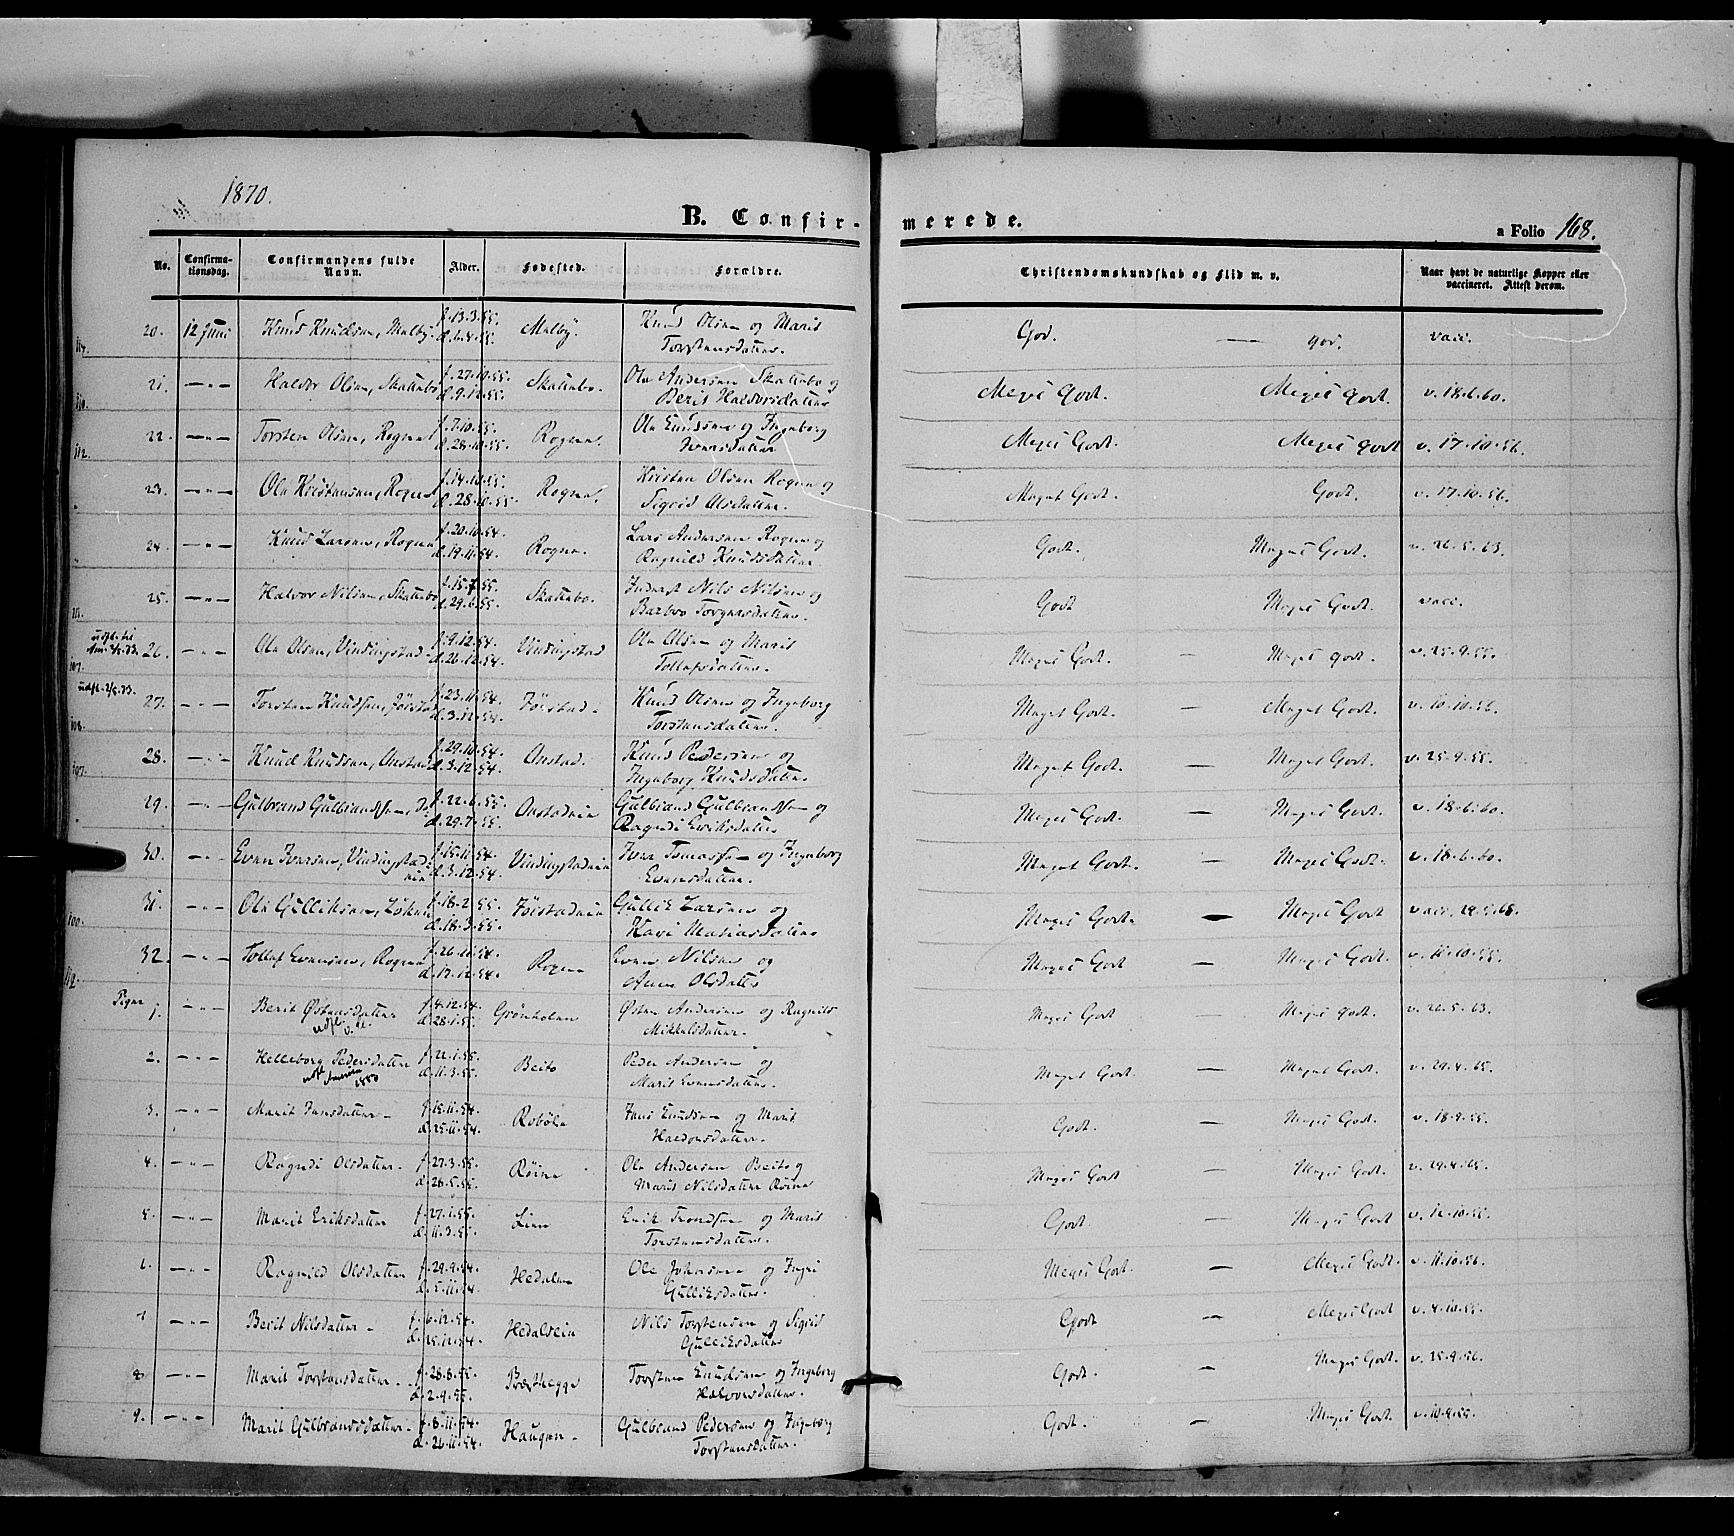 1870.
B. Confirmerede.
a Folio 168.
No. Confirmationsdag. Confirmandens fulde Navn. Alder. Fødested. Forældre. Christendomskundskab og Flid m. v. Naar havt de naturlige Kopper eller vaccineret. Attest derom.
114. 20. 12 Juni Knud Knudsen, Melby. f. 13.3.55. d. 6.4.55. Melby. Knud Olsen og Marit Torstensdatter. God. — god. vacc.
110. 21. —"— Halvor Olsen, Skattebo f. 27.10.55. Skattebo. Ole Andersen Skattebo og Berit Halvorsdatter Meget Godt. Meget Godt. v. 18.6.60.
112. 22. —"— Torsten Olsen, Rogne f. 7.10.55. d. 28.10.55. Rogne. Ole Knudsen og Ingeborg Iversdatter Meget Godt. Meget godt v. 17.10.56.
" 23. —"— Ole Kristensen, Rogne f. 14.10.55. d. 28.10.55. Rogne. Kristen Olsen Rogne og Sigrid Olsdatter. Meget Godt. Godt. v. 17.10.56.
" 24. —"— Knud Larsen, Rogne f. 20.10.54. d. 19.11.54. Rogne. Lars Andersen Rogne og Ragnild Knudsdatter Godt. Meget Godt. v. 26.5.63.
111. 25. —"— Halvor Nilsen, Skattebo f. 15.7.55. d. 29.6.55. Skattebo. Inderst Nils Nilsen og Barbro Torgersdatter. Godt Meget Godt. vacc.
udfl. til Am. 107. 26. —"— Ole Olsen, Vindingstad f. 9.12.54. d. 26.12.54. Vindingstad Ole Olsen og Marit Tollefsdatter. Meget Godt. — Meget godt. v. 25.9.55.
udfl. 108. 27. —"— Torsten Knudsen, Jørstad f. 23.11.54. d. 3.12.54. Jørstad. Knud Olsen og Ingeborg Torstensdatter. Meget Godt. — Meget Godt. v. 10.10.56.
107. 28. —"— Knud Knudsen, Onstad f. 29.10.54. d. 3.12.54. Onstad. Knud Pedersen og Ingeborg Knudsdatter Meget Godt. — Meget Godt. v. 25.9.55.
" 29. —"— Gulbrand Gulbrandsen, Do f. 22.6.55. d. 29.7.55. Onstadeie Gulbrand Gulbrandsen og Ragndi Eriksdatter Meget Godt. — Meget Godt. v. 18.6.60.
" 30. —"— Even Iversen, Vindingstadeie f. 15.11.54. d. 3.12.54. Vindingstadeie Iver Tomassen og Ingeborg Evensdatter. Meget Godt. — Meget Godt. v. 18.6.60.
100. 31. —"— Ole Gulliksen, Løken f. 18.2.55. d. 18.3.55. Jørstadeie Gullik Larsen og Kari Matiasdatter Meget Godt. — Meget Godt
112. 32. —"— Tollef Evensen, Rogne f. 26.11.54. d. 17.12.54. Rogne Even Nilsen og Anne Olsdatter Meget Godt — Meget Godt. v. 11.10.55.
Piger 1. —"— Berit Østensdatter udfl. f. 4.12.54. d. 28.1.55. Grønholen Østen Andersen og Ragnild Mikkelsdatter. Meget Godt — Meget godt. v. 26.5.63.
2. —"— Helleborg Pedersdatter udfl. Amerika 1880 f. 22.1.55. d. 11.3.55. Beito Peder Andersen og Marit Evensdatter. Meget Godt. — Meget Godt. v. 29.4.65.
3. —"— Marit Jensdatter f. 15.11.54. d. 25.11.54. Robøle Jens Knudsen og Marit Halvorsdatter. Godt. — Meget Godt. v. 18.9.55.
4. —"— Ragndi Olsdatter f. 27.3.55. d. 26.5.55. Røine Ole Andersen Beito og Marit Nilsdatter Røine Meget Godt — Meget Godt. v. 29.4.65.
5. —"— Marit Eriksdatter f. 27.1.55. d. 11.3.55. Lien Erik Trondsen og Marit Torstensdatter. Godt. — Meget Godt v. 12.10.56.
6. —"— Ragnild Olsdatter f. 29.9.54. d. 5.11.54. Hedalen Ole Johnsen og Ingri Gulliksdatter. Meget Godt. — Meget Godt. v. 11.10.56.
7 —"— Berit Nilsdatter f. 6.12.54. d. 25.12.54. Hedalseie Nils Torstensen og Sigrid Gulliksdatter Godt — Meget Godt v. 4.10.55.
8 —"— Marit Torstensdatter f. 28.8.55. d. 2.9.55. Præsthegge Torsten Knudsen og Ingeborg Halvorsdatter. Godt. — Meget Godt. v. 25.9.56.
9. —"— Marit Gulbrandsdatter f. 8.11.54. d. 26.11.54. Haugen Gulbrand Pedersen og Ingeborg Torstensdatter. Godt — Meget Godt. v. 10.9.55.